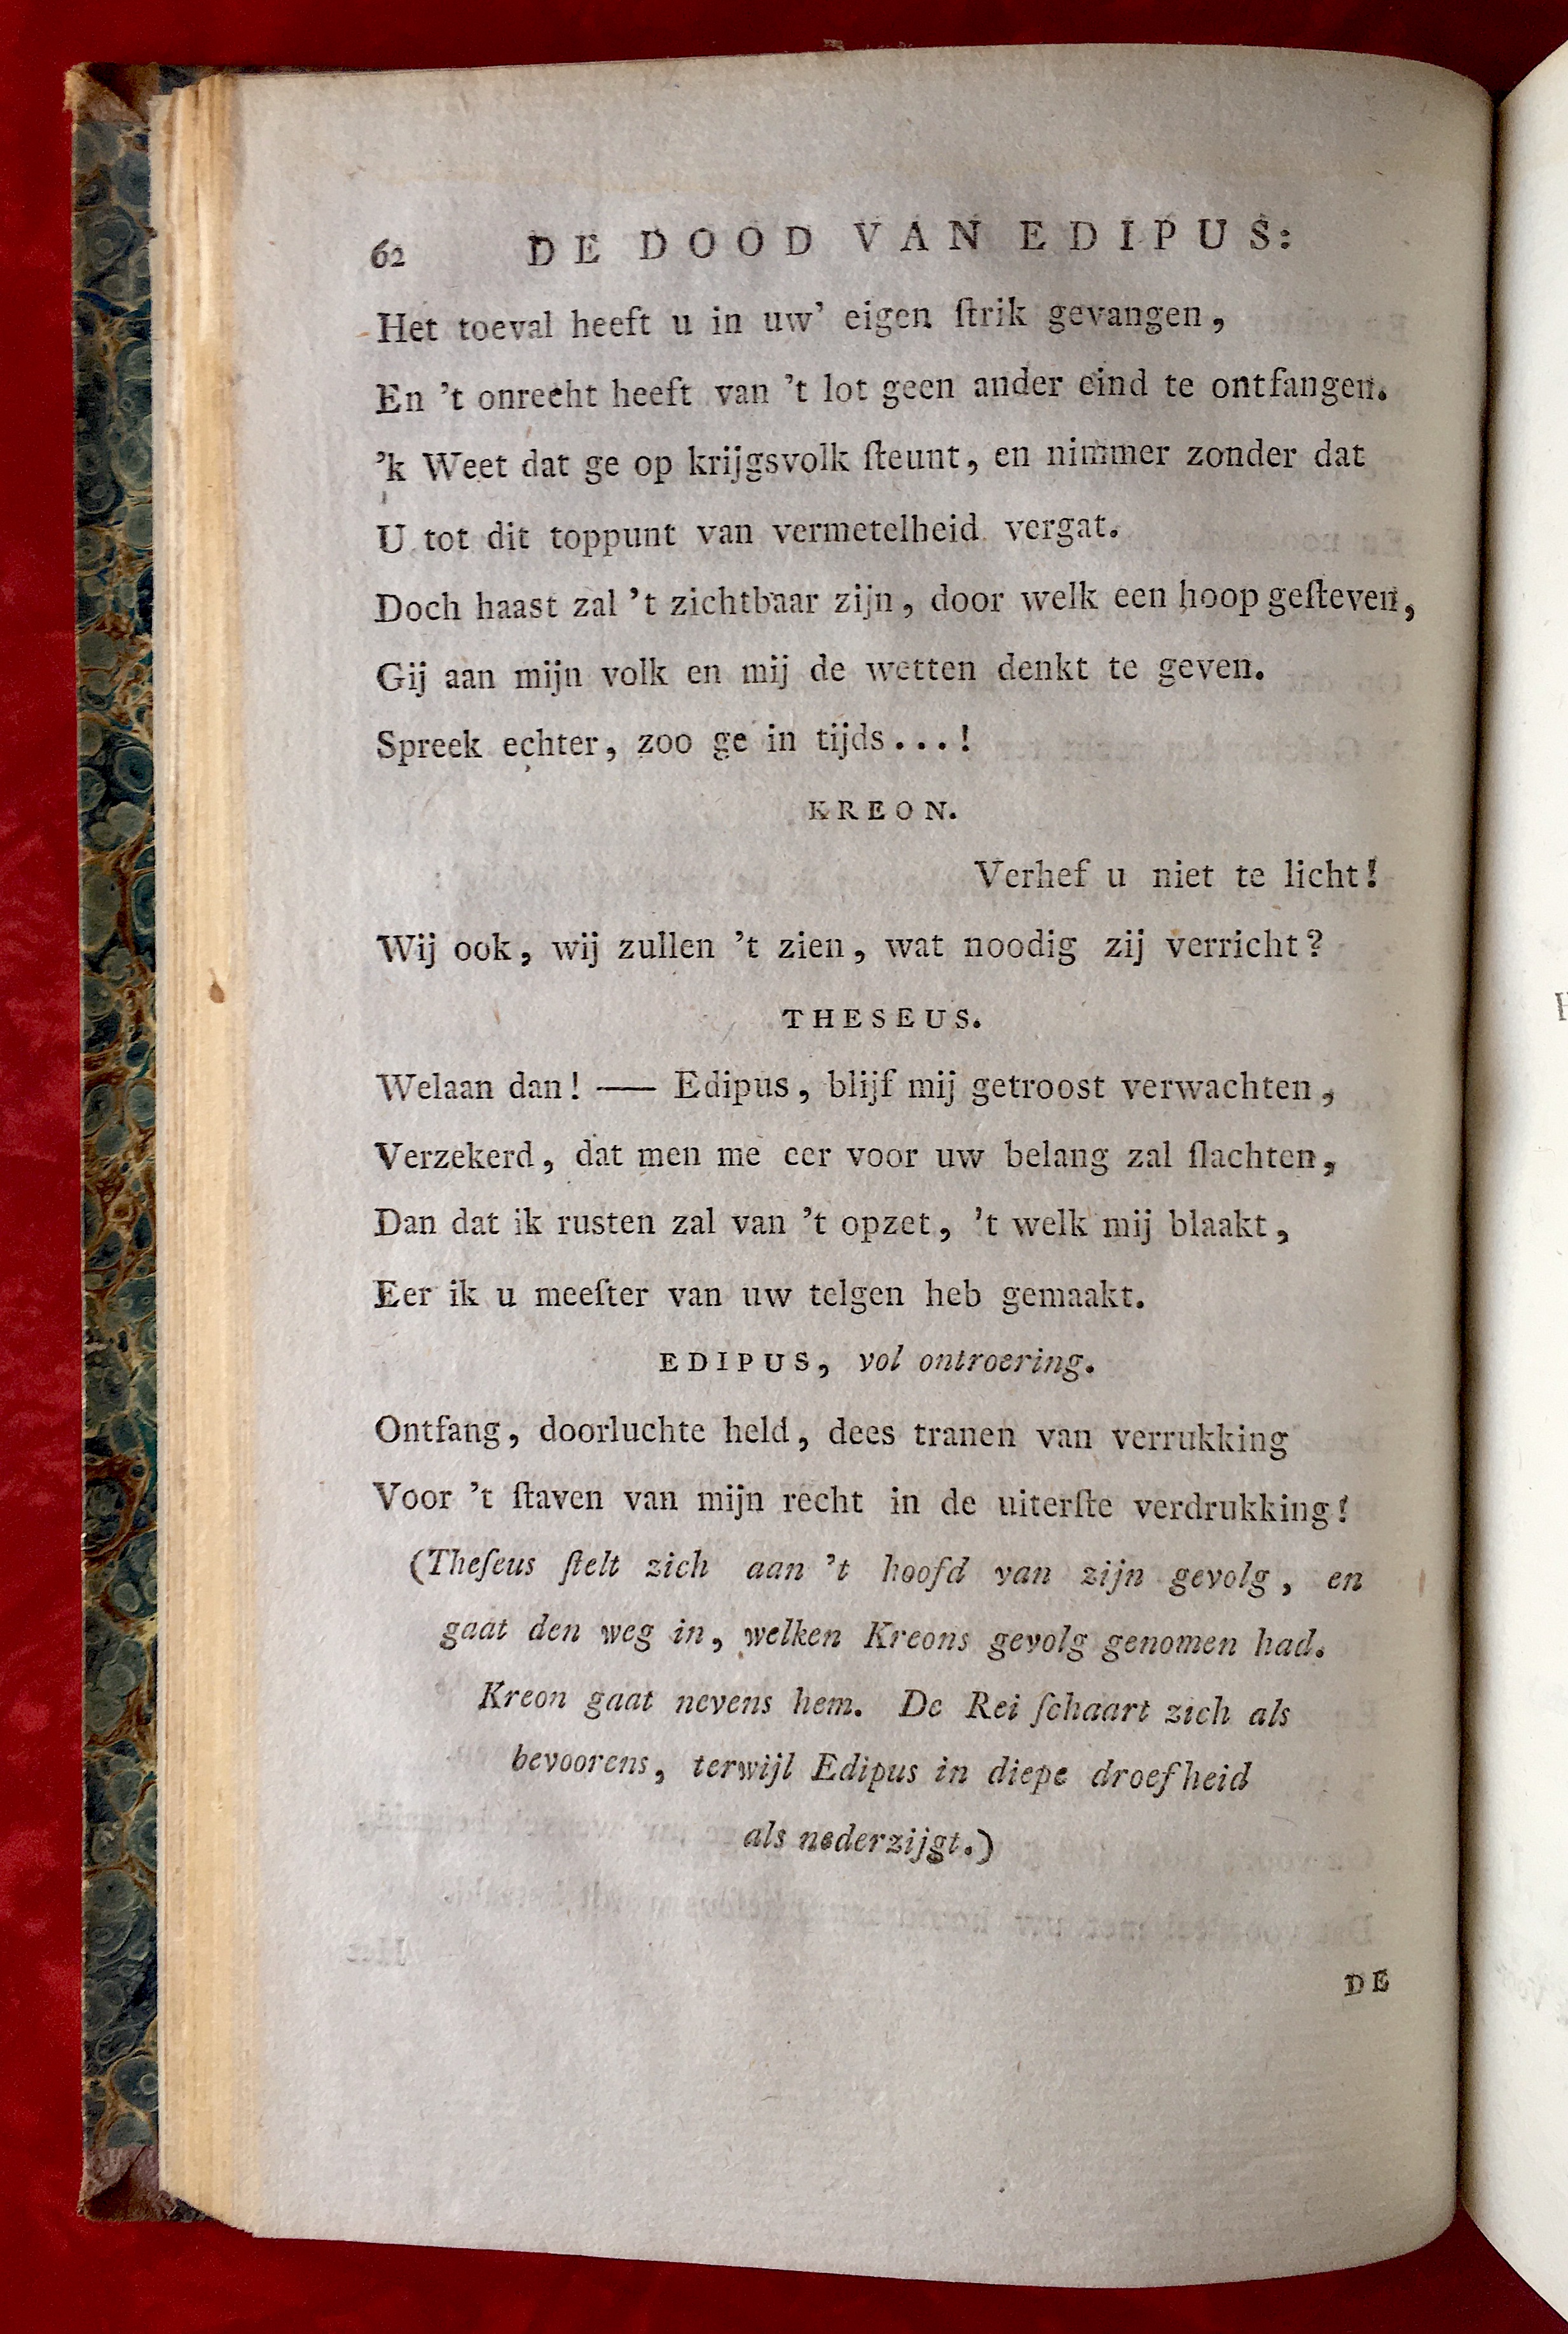 62 DE DOOD VAN EDIPUS:
Het toeval heeft u in uw' eigen ſtrik gevangen,
En 't onrecht heeft van 't lot geen ander eind te ontfangen.
'k Weet dat ge op krijgsvolk ſteunt, en nimmer zonder dat
U tot dit toppunt van vermetelheid vergat.
Doch haast zal 't zichtbaar zijn, door welk een hoop geſteven,
Gij aan mijn volk en mij de wetten denkt te geven.
Spreek echter, zoo ge in tijds...!
KREON.
Verhef u niet te licht!
Wij ook, wij zullen 't zien, wat noodig zij verricht?
THESEUS.
Welaan dan! —— Edipus, blijf mij getroost verwachten,
Verzekerd, dat men me eer voor uw belang zal ſlachten,
Dan dat ik rusten zal van 't opzet, 't welk mij blaakt,
Eer ik u meeſter van uw telgen heb gemaakt.
EDIPUS, vol ontroering.
Ontfang, doorluchte held, dees tranen van verrukking
Voor 't ſtaven van mijn recht in de uiterſte verdrukking!
(Theſeus ſtelt zich aan 't hoofd van zijn gevolg, en
gaat den weg in, welken Kreons gevolg genomen had.
Kreon gaat nevens hem. De Rei ſchaart zich als
bevoorens, terwijl Edipus in diepe droefheid
als nederzijgt.)
DE